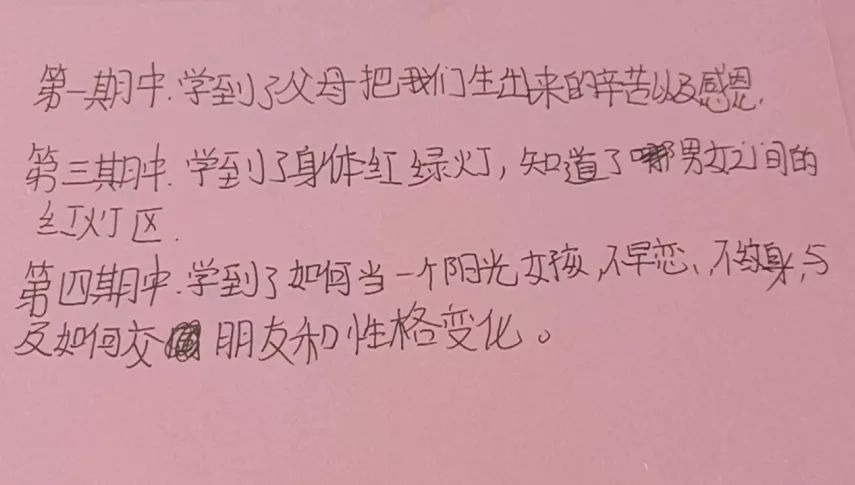 第一期中.学到了父母把我们生出来的辛苦以及感恩.
第三期中.学到了身体红绿灯,知道了男女之间的
红灯区.
第四期中.学到了如何当一个阳光女孩,不早恋、不纹身,以
及如何交朋友和性格变化。